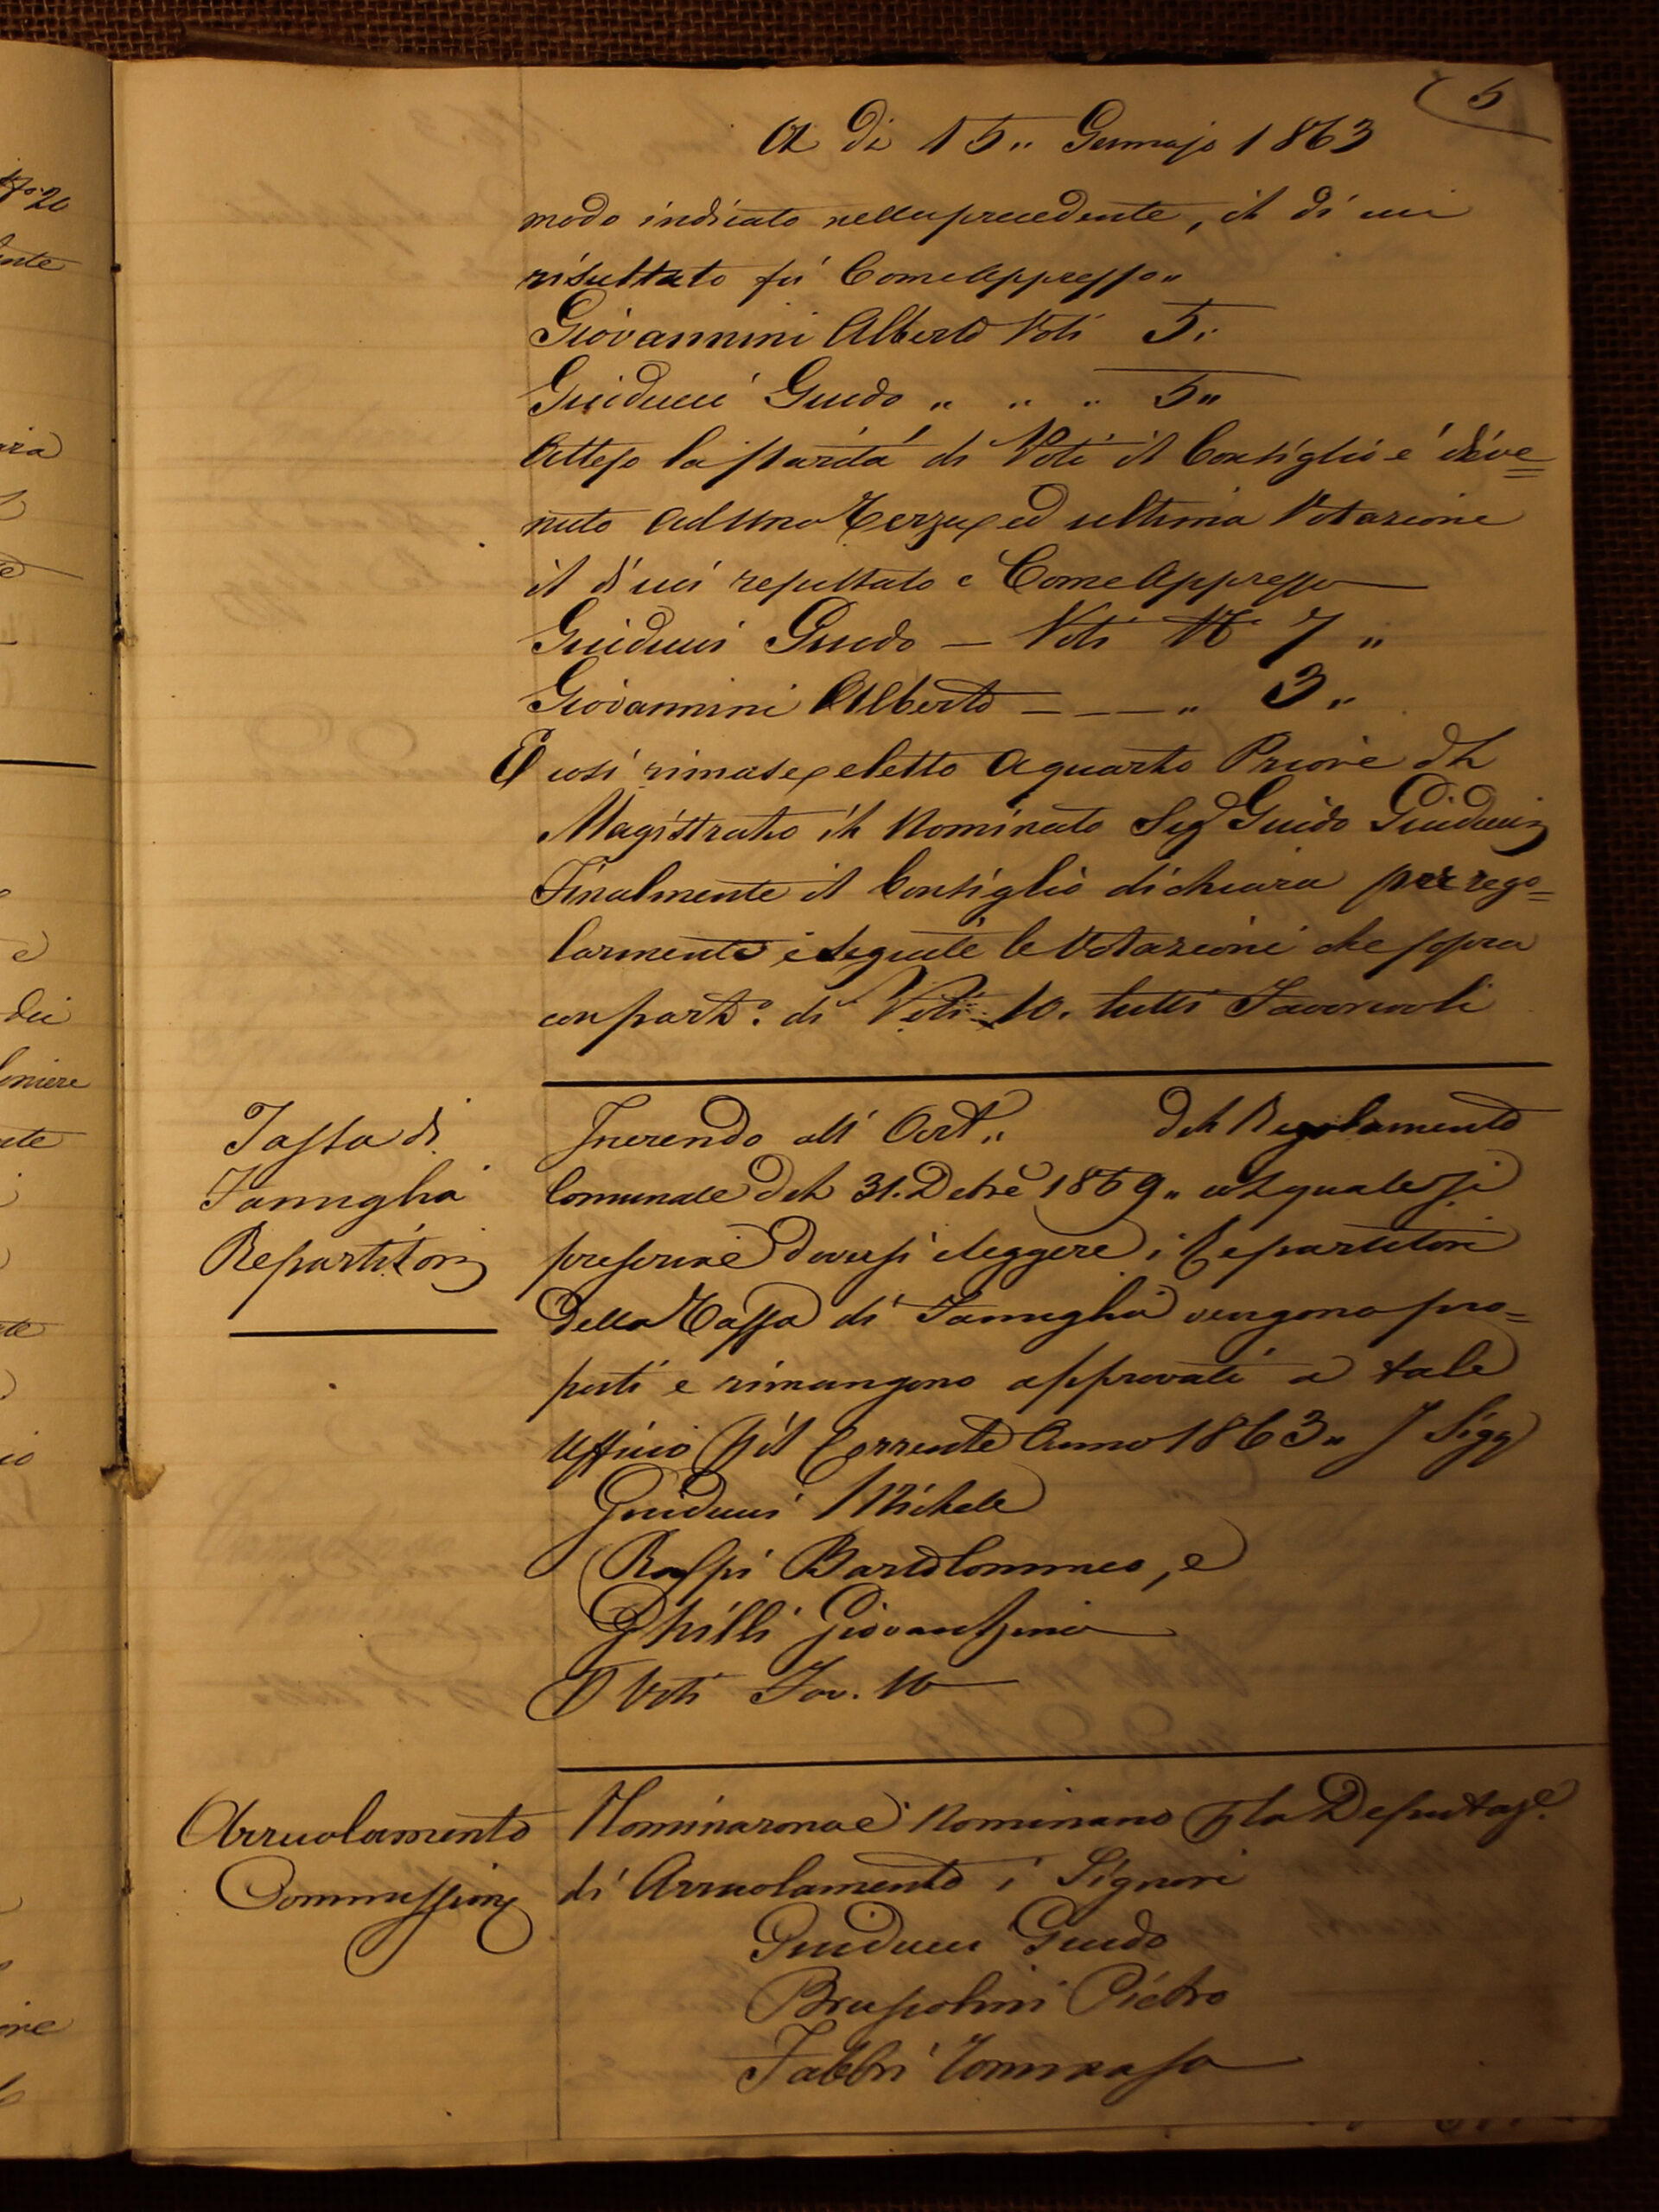 5
A di 15,, Gennajo 1863
modo indicato nella precedente, il di cui
risultato fù Come Appresso,,
Giovannini Alberto Voti 5.
Guiducci Guido ,, ,, ,, 5,,
Atteso la parità di Voti il Consiglio è dive=
nuto ad una Terza, ed ultima Votazione
il di cui resultato è Come Appresso
Guiducci Guido — Voti N° 7 ,,
Giovannini Alberto — — — ,, 3 ,,
E così rimase eletto a quarto Priore del
Magistrato il Nominato Sig Guido Guiducci
Finalmente il Consiglio dichiara per rego=
larmente eseguite le Votazioni che sopra
con part° di Voti 10. tutti Favorevoli
Tassa di
Famiglia
Repartitori
Inerendo all' Art,, del Regolamento
Comunale del 31. Dcbrè 1859,, col quale si
prescrive doversi eleggere i Repartitori
della Tassa di Famiglia vengono pro=
posti e rimangono approvati a tale
Ufficio p il Corrente Anno 1863,, I Sigg
Guiducci Michele
Raspi Bartolommeo, e
Ghilli Giovan
P Voti Fav. 10
Arruolamento
Commissione
Nominarono e Nominano p la Deputaze.
di Arruolamento i Signori
Guiducci Guido
Pietro
Fabbri Tommaso